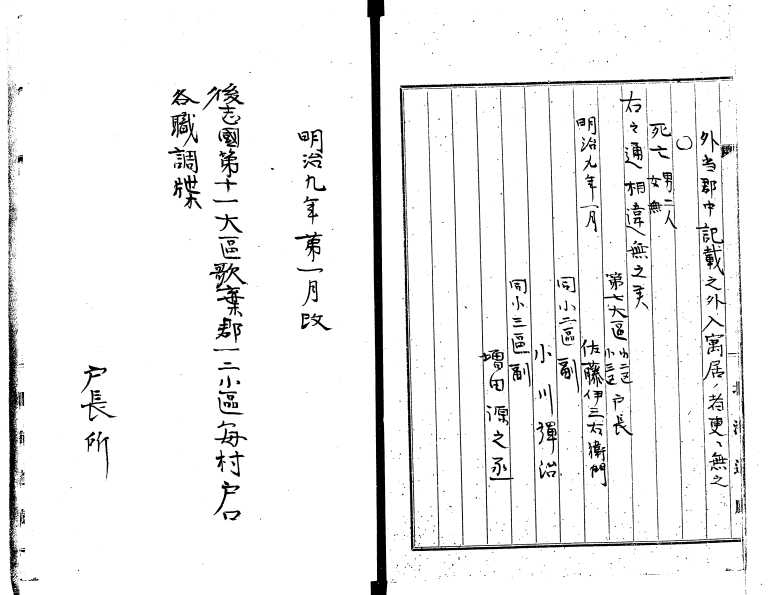 外当郡中記載之外入寓居ノ者更ニ無之
〇
死亡 男二人
女無
右之通相違無之候
明治九年一月
第七大區 小二区 小三区 戸長
佐藤伊三右衛門
同小二區副
小川彈治
同小三區副
増田源之丞
明治九年第一月改
後志國第十一大區歌棄郡一二小區毎村戸口
各職調牒
戸長所
北海道